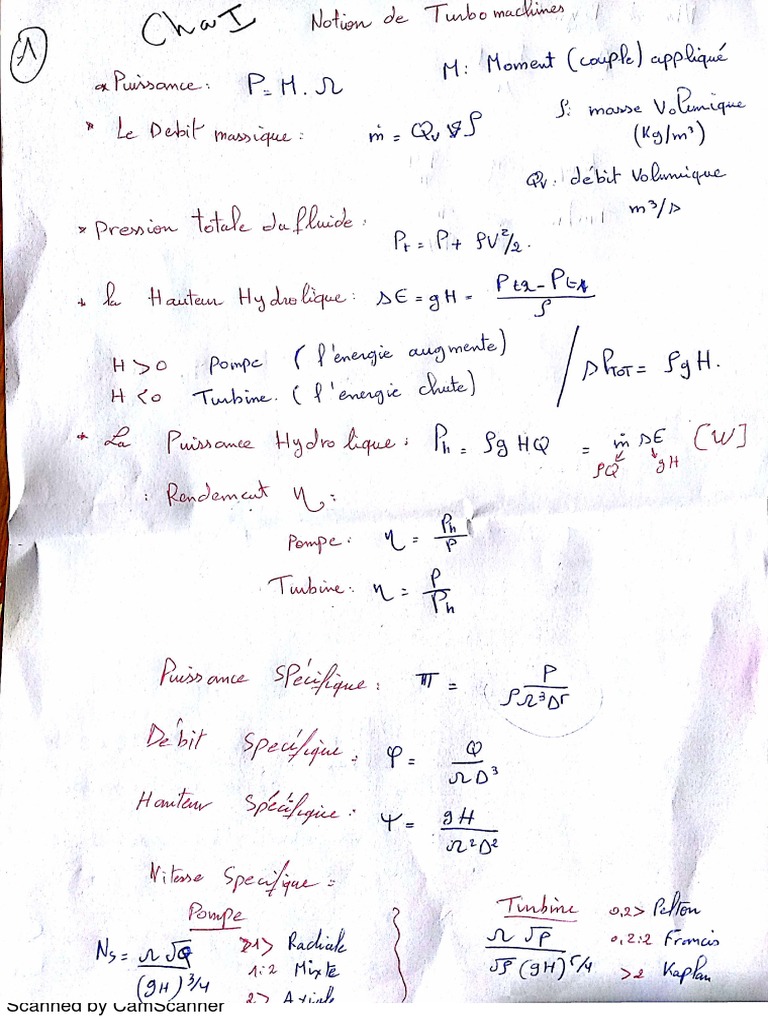 1
Cha I Notion de Turbomachines
* Puissance: P = M . Ω M: Moment (couple) appliqué
* Le Debit massique: ṁ = Qv ρ ρ: masse Volumique
(Kg/m³)
Qv: débit Volumique
m³/s
* Pression totale du fluide: Pt = P + ρV²/2.
* la Hauteur Hydrolique: ΔE = gH = (Pt2 - Pt1)/ρ
H > 0 Pompe (l'énergie augmente)
H < 0 Turbine. (l'énergie chute) / ΔPTOT = ρgH.
* La Puissance Hydrolique: Ph = ρg HQ = ṁ ΔE [W]
ρQ gH
: Rendement η:
Pompe: η = Ph/P
Turbine: η = P/Ph
Puissance Spécifique: π = P/(ρΩ³D⁵)
Débit Specifique: φ = Q/(ΩD³)
Hauteur Spécifique: Ψ = gH/(Ω²D²)
Vitesse Specifique =
Pompe
Ns = Ω√Q/(gH)^3/4
1> Radiale
1:2 Mixte
2> Axiale
Turbine
Ω√P/(√ρ(gH)^5/4)
0,2> Pelton
0,2:2 Francis
>2 Kaplan
Scanned by CamScanner